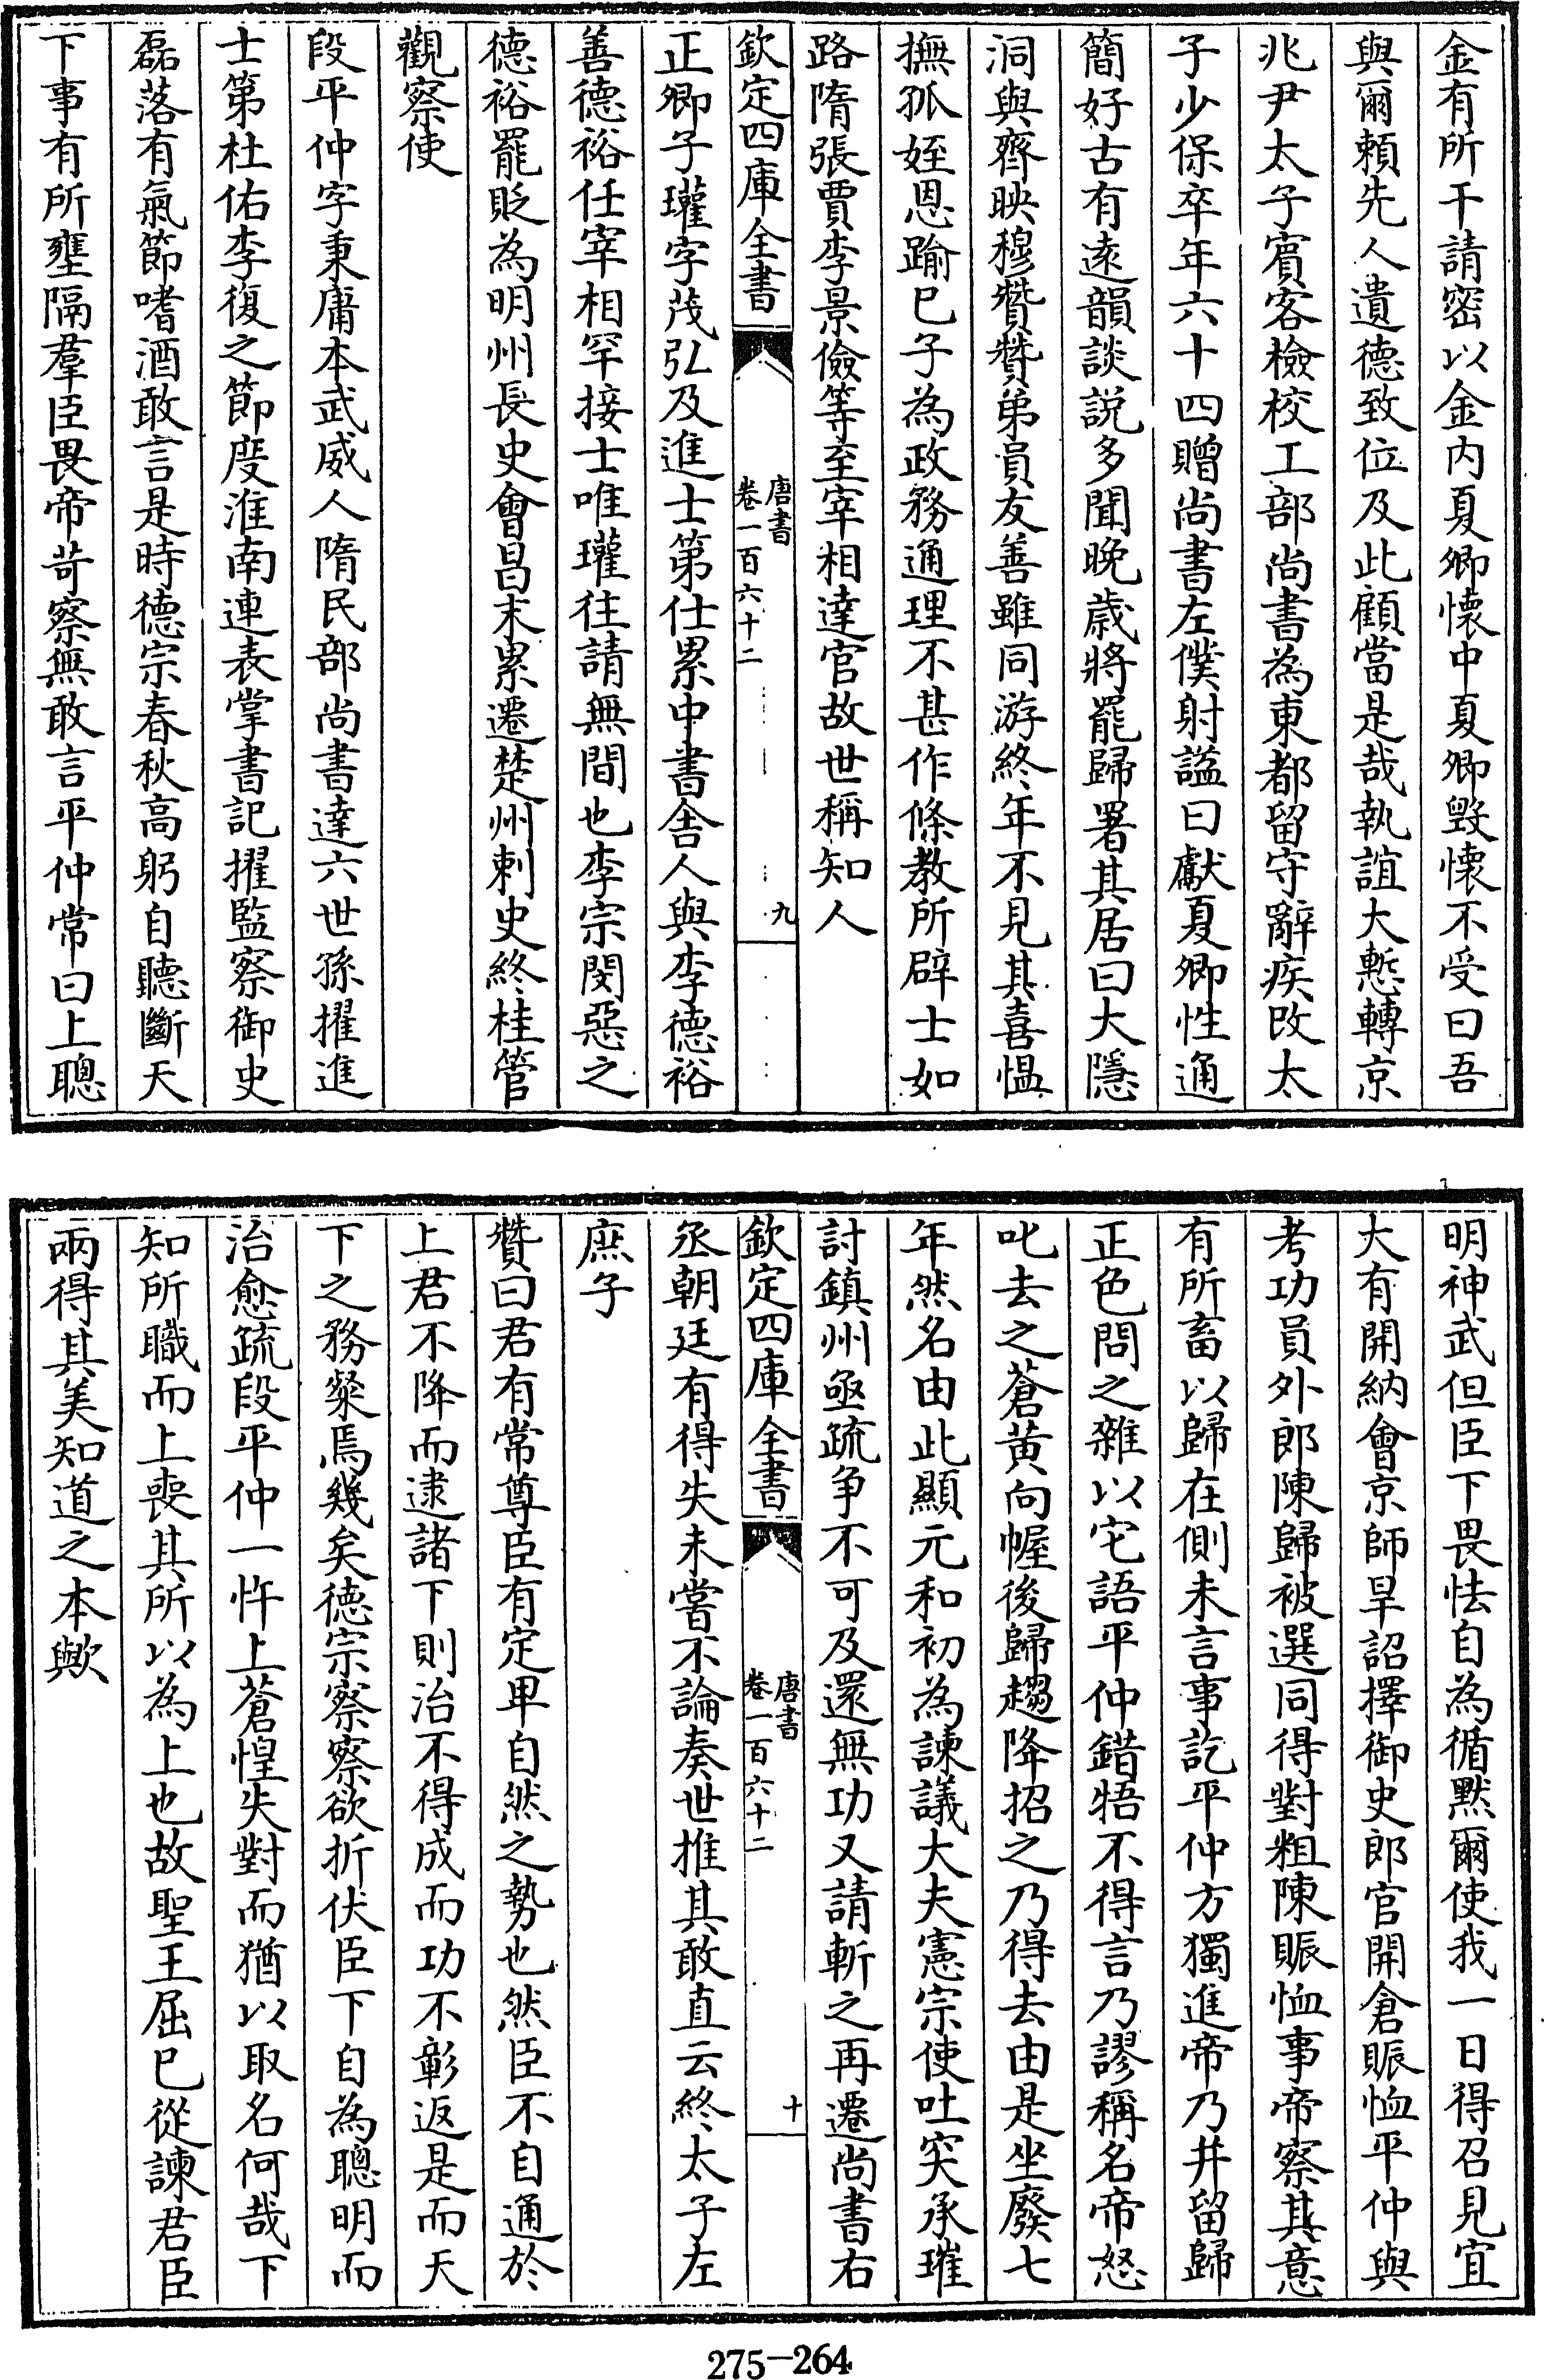 金有所干請密以金内夏卿懷中夏卿毀懷不受曰吾
與爾賴先人遺德致位及此顧當是哉執誼大慙轉京
兆尹太子賓客檢校工部尚書為東都留守辭疾改太
子少保卒年六十四贈尚書左僕射諡曰獻夏卿性通
簡好古有逺韻談説多聞晚歲將罷歸署其居曰大隱
洞與齊映穆贊贊弟員友善雖同游終年不見其喜愠
撫孤姪恩踰已子為政務通理不甚作條教所辟士如
路隋張賈李景儉等至宰相達官故世稱知人
欽定四庫全書
唐書
卷一百六十二
九
正卿子瓘字茂弘及進士第仕累中書舍人與李德裕
善德裕任宰相罕接士唯瓘往請無間也李宗閔惡之
德裕罷貶為明州長史會昌末累遷楚州刺史終桂管
觀察使
段平仲字秉庸本武威人隋民部尚書達六世孫擢進
士第杜佑李復之節度淮南連表掌書記擢監察御史
磊落有氣節嗜酒敢言是時德宗春秋高躬自聽斷天
下事有所壅隔羣臣畏帝苛察無敢言平仲常曰上聰
明神武但臣下畏怯自為循默爾使我一日得召見宜
大有開納會京師旱詔擇御史郎官開倉賑恤平仲與
考功員外郎陳歸被選同得對粗陳賑恤事帝察其意
有所畜以歸在側未言事訖平仲方獨進帝乃并留歸
正色問之雜以它語平仲錯牾不得言乃謬稱名帝怒
叱去之蒼黄向幄後歸趨降招之乃得去由是坐廢七
年然名由此顯元和初為諫議大夫憲宗使吐突承璀
討鎮州亟疏争不可及還無功又請斬之再遷尚書右
欽定四庫全書
唐書
卷一百六十二
十
丞朝廷有得失未嘗不論奏世推其敢直云終太子左
庶子
贊曰君有常尊臣有定卑自然之勢也然臣不自通於
上君不降而逮諸下則治不得成而功不彰返是而天
下之務粲焉幾矣德宗察察欲折伏臣下自為聰明而
治愈疏段平仲一忤上蒼惶失對而猶以取名何哉下
知所職而上喪其所以為上也故聖王屈已從諫君臣
兩得其美知道之本歟
275-264